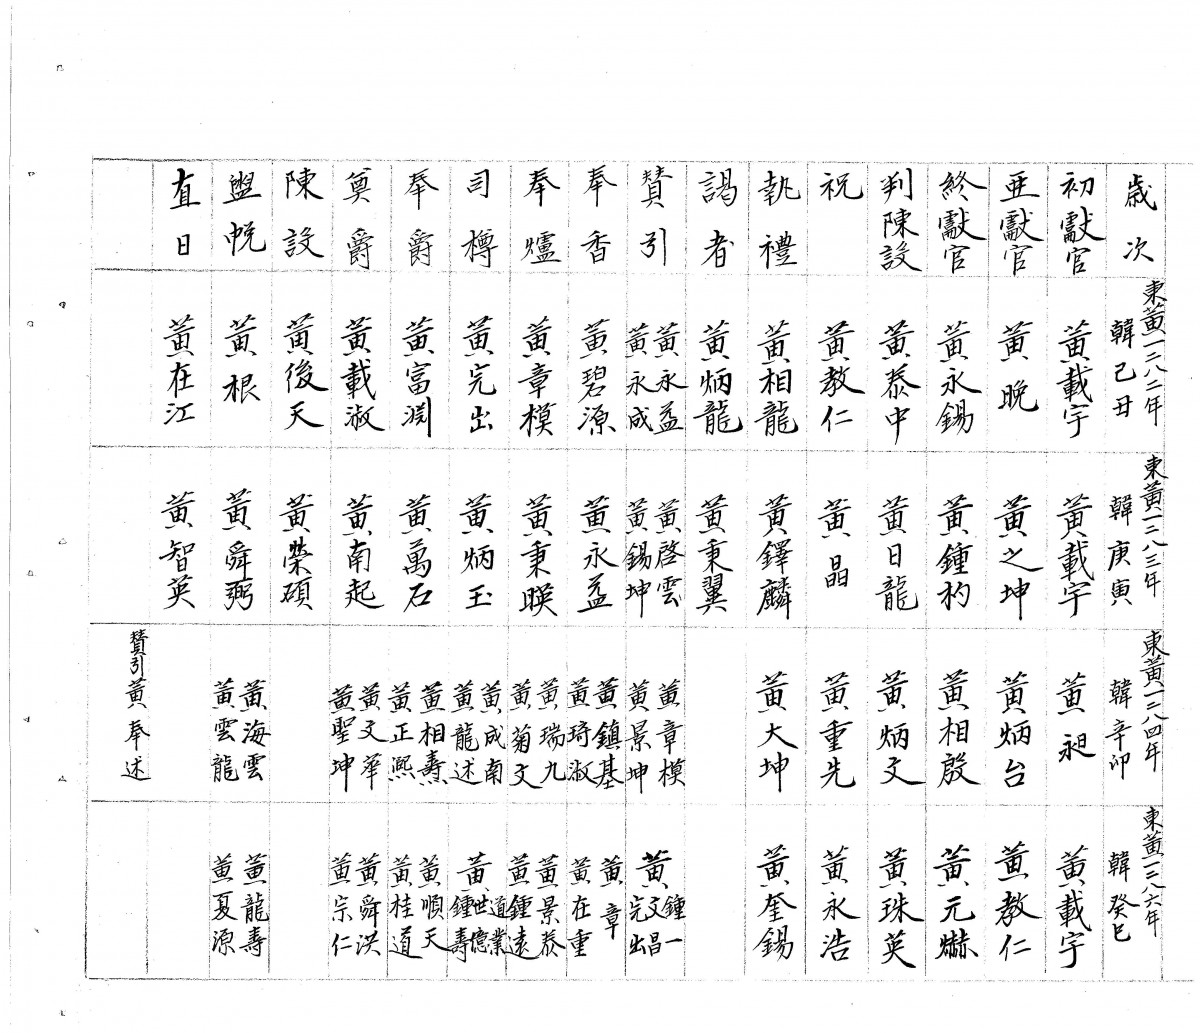 歲次
初獻官
亞獻官
終獻官
判陳設
祝
執禮
謁者
贊引
奉香
奉爐
司樽
奉爵
奠爵
陳設
盥帨
直日
東黃一二八二年
韓己丑
黃載宇
黃晚
黃永錫
黃泰中
黃教仁
黃相龍
黃炳龍
黃永益
黃永成
黃碧源
黃章模
黃完出
黃富淵
黃載淑
黃後天
黃根
黃在江
東黃一二八三年
韓庚寅
黃載宇
黃之坤
黃鍾杓
黃日龍
黃晶
黃鐸麟
黃秉翼
黃啓雲
黃錫坤
黃永益
黃秉暎
黃炳玉
黃萬石
黃南起
黃榮碩
黃舜弼
黃智英
東黃一二八四年
韓辛卯
黃昶
黃炳台
黃相殷
黃炳文
黃重先
黃大坤
黃章模
黃景坤
黃鎮基
黃琦淑
黃瑞九
黃菊文
黃成南
黃龍述
黃相壽
黃正熙
黃文華
黃聖坤
黃海雲
黃雲龍
贊引黃奉述
東黃一二八六年
韓癸巳
黃載宇
黃教仁
黃元爀
黃珠英
黃永浩
黃奎錫
黃鍾一
文昌
完出
黃章
黃在重
黃景泰
黃鍾遠
黃道業
世億
鍾壽
黃順天
黃桂道
黃舜洪
黃宗仁
黃龍壽
黃夏源